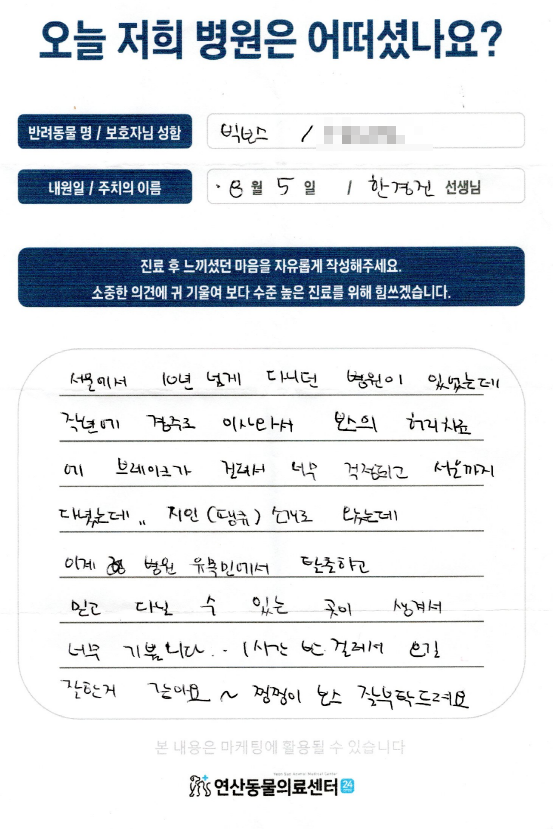 오늘 저희 병원은 어떠셨나요?
반려동물 명 / 보호자님 성함
빅보스 /
내원일 / 주치의 이름
8월 5일 / 한경건 선생님
진료 후 느끼셨던 마음을 자유롭게 작성해주세요.
소중한 의견에 귀 기울여 보다 수준 높은 진료를 위해 힘쓰겠습니다.
서울에서 10년 넘게 다니던 병원이 있었는데
작년에 경주로 이사와서 보스의 허리치료
에 브레이크가 걸려서 너무 걱정되고 서울까지
다녔는데.. 지인(땡큐) 소개로 왔는데
이제 병원 유목민에서 탈출하고
믿고 다닐 수 있는 곳이 생겨서
너무 기쁩니다.. 1시간 반 걸려서 오길
잘한거 같아요~ 찡찡이 보스 잘부탁드려요
본 내용은 마케팅에 활용될 수 있습니다
연산동물의료센터 24